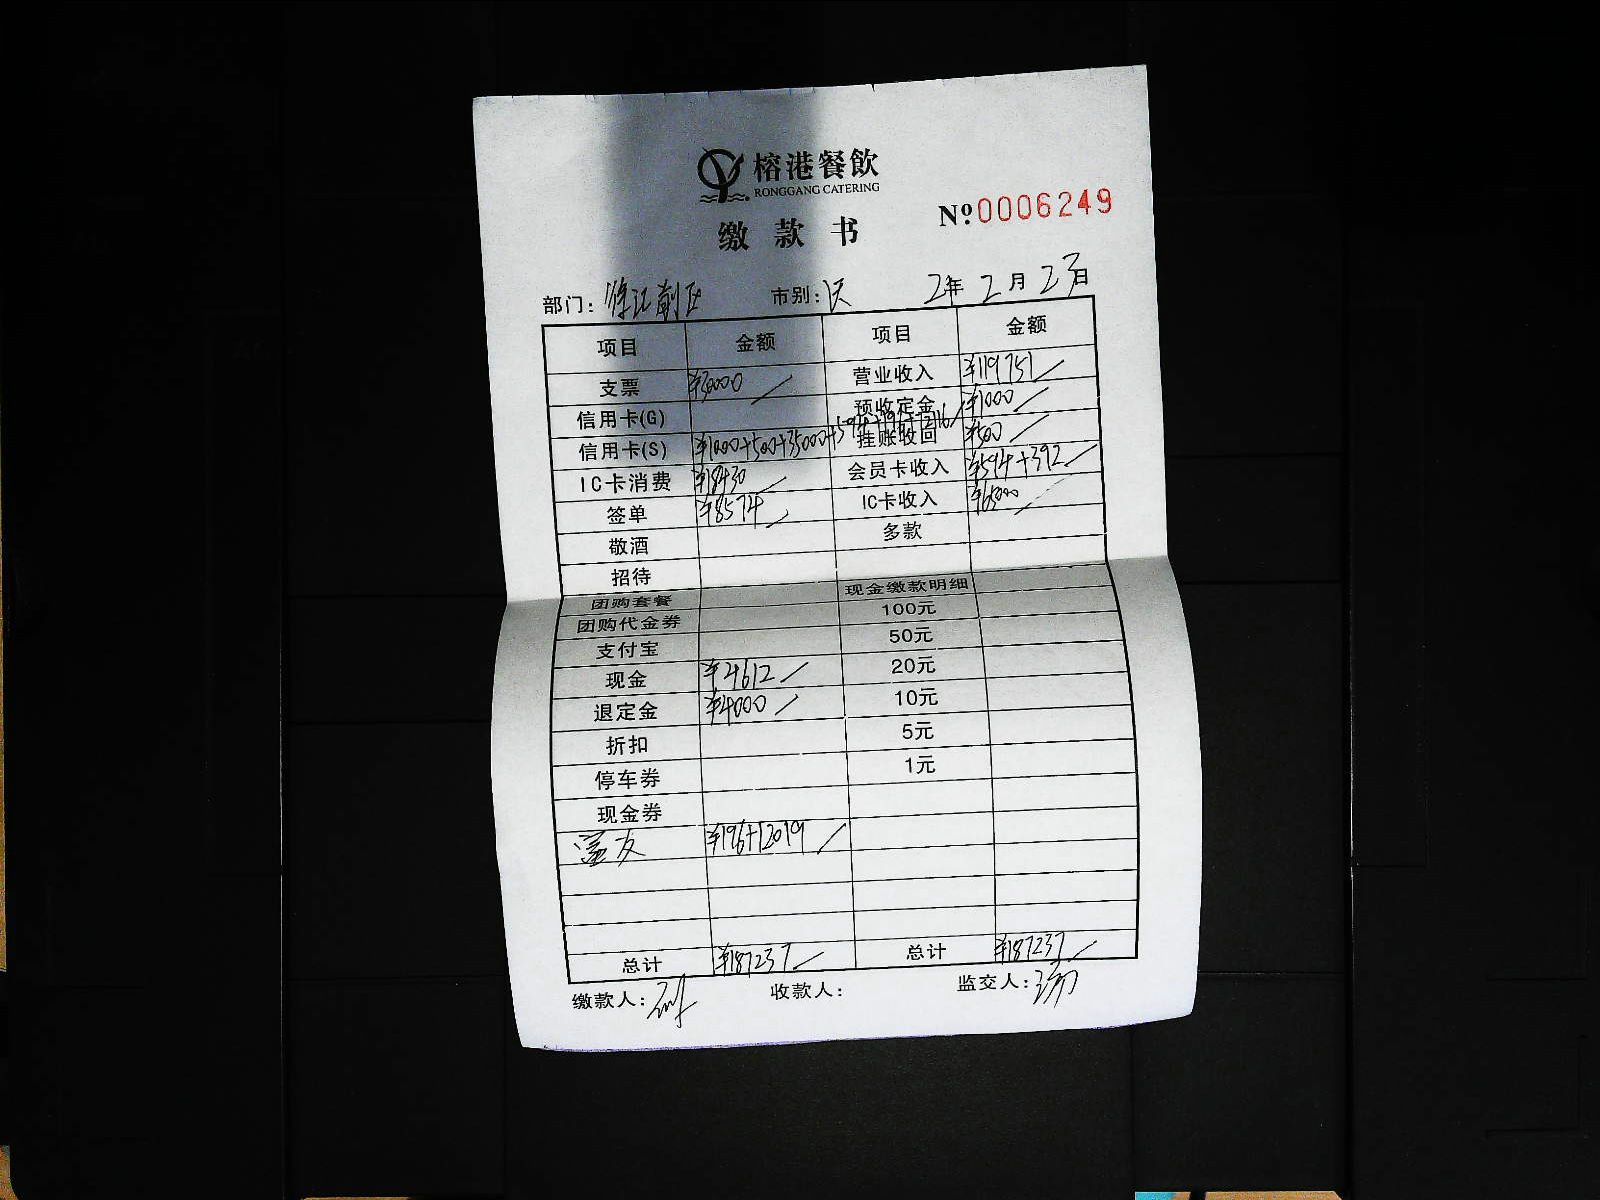 榕港餐飲
RONGGANG CATERING
缴款书
№ 0006249
部门: 徐汇前区 市别: 2年2月23日
项目 金额 项目 金额
支票 营业收入 ¥119751
信用卡(G) 预收定金 ¥1000
信用卡(S) ¥1000+500+35000+ 挂账收回 ¥500
IC卡消费 ¥18430 会员卡收入 ¥594+392
签单 ¥8574 IC卡收入 ¥65000
敬酒 多款
招待
团购套餐 现金缴款明细
团购代金券 100元
支付宝 50元
现金 ¥4612 20元
退定金 ¥4000 10元
折扣 5元
停车券 1元
现金券
¥196+12019
总计 ¥187237 总计 ¥187237
缴款人: 收款人: 监交人: